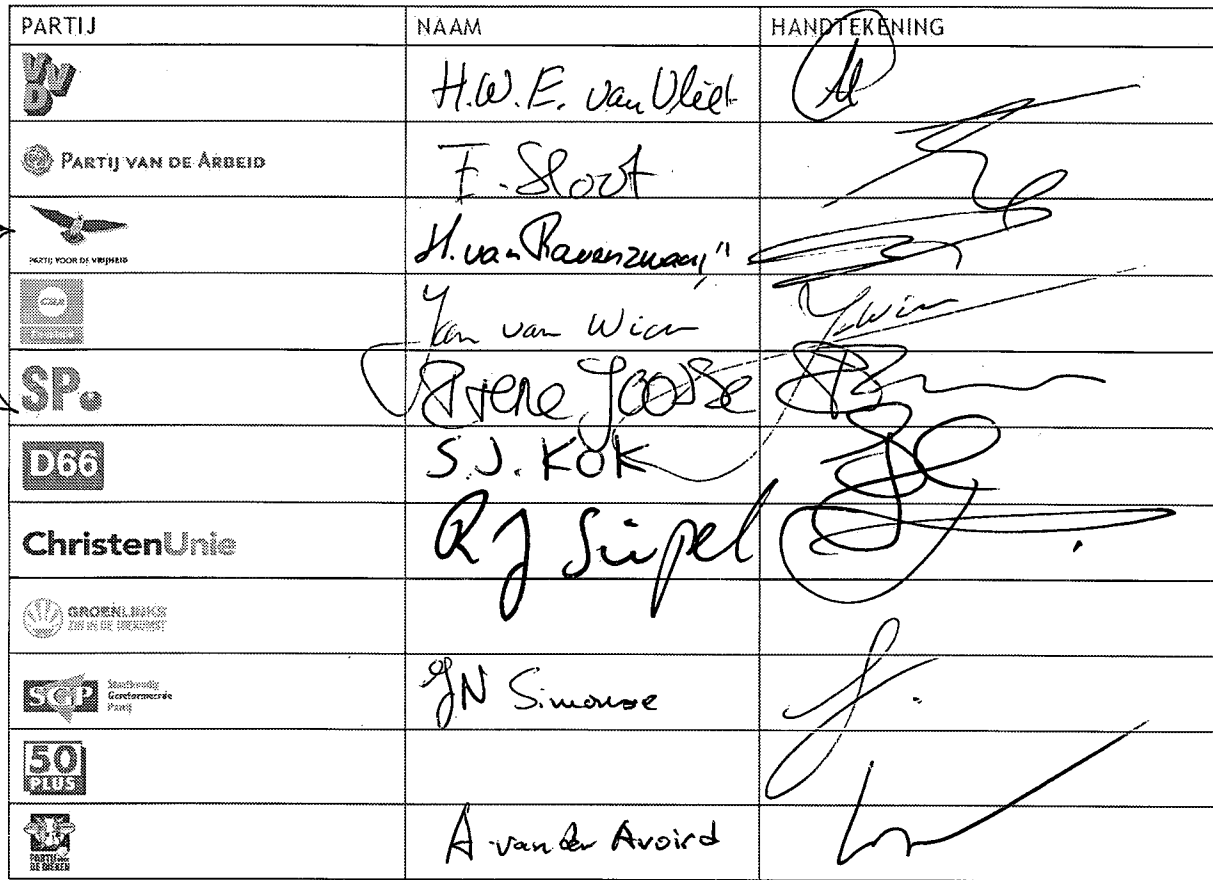 PARTIJ NAAM HANDTEKENING
VVD H.W.E. van Vliet
PARTIJ VAN DE ARBEID F. Sloot
PARTIJ VOOR DE VRIJHEID H. van Ravenzwaaij
CDA Jan van Wier
SP. Joosse
D66 S.J. KOK
ChristenUnie R J Seipel
GROENLINKS
SGP Staatkundig Gereformeerde Partij JN Simonse
50 PLUS
PARTIJ voor DE DIEREN A van der Avoird